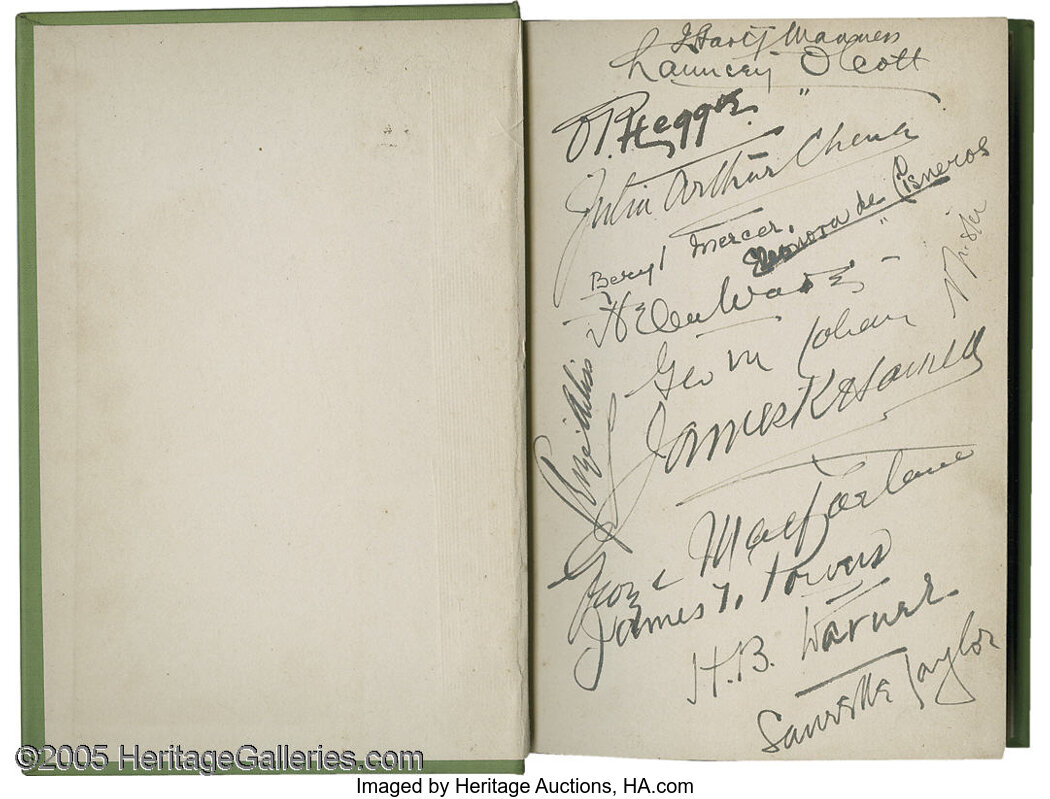 J Hartley Manners
Chauncey Olcott
O.P. Heggie.
Julia Arthur Cheney
Beryl Mercer.
Eleonora de Cisneros
Helen Ware
Geo M Cohan
James K Hackett
George MacFarlane
James T. Powers
H.B. Warner
Laurette Taylor
©2005 HeritageGalleries.com
Imaged by Heritage Auctions, HA.com